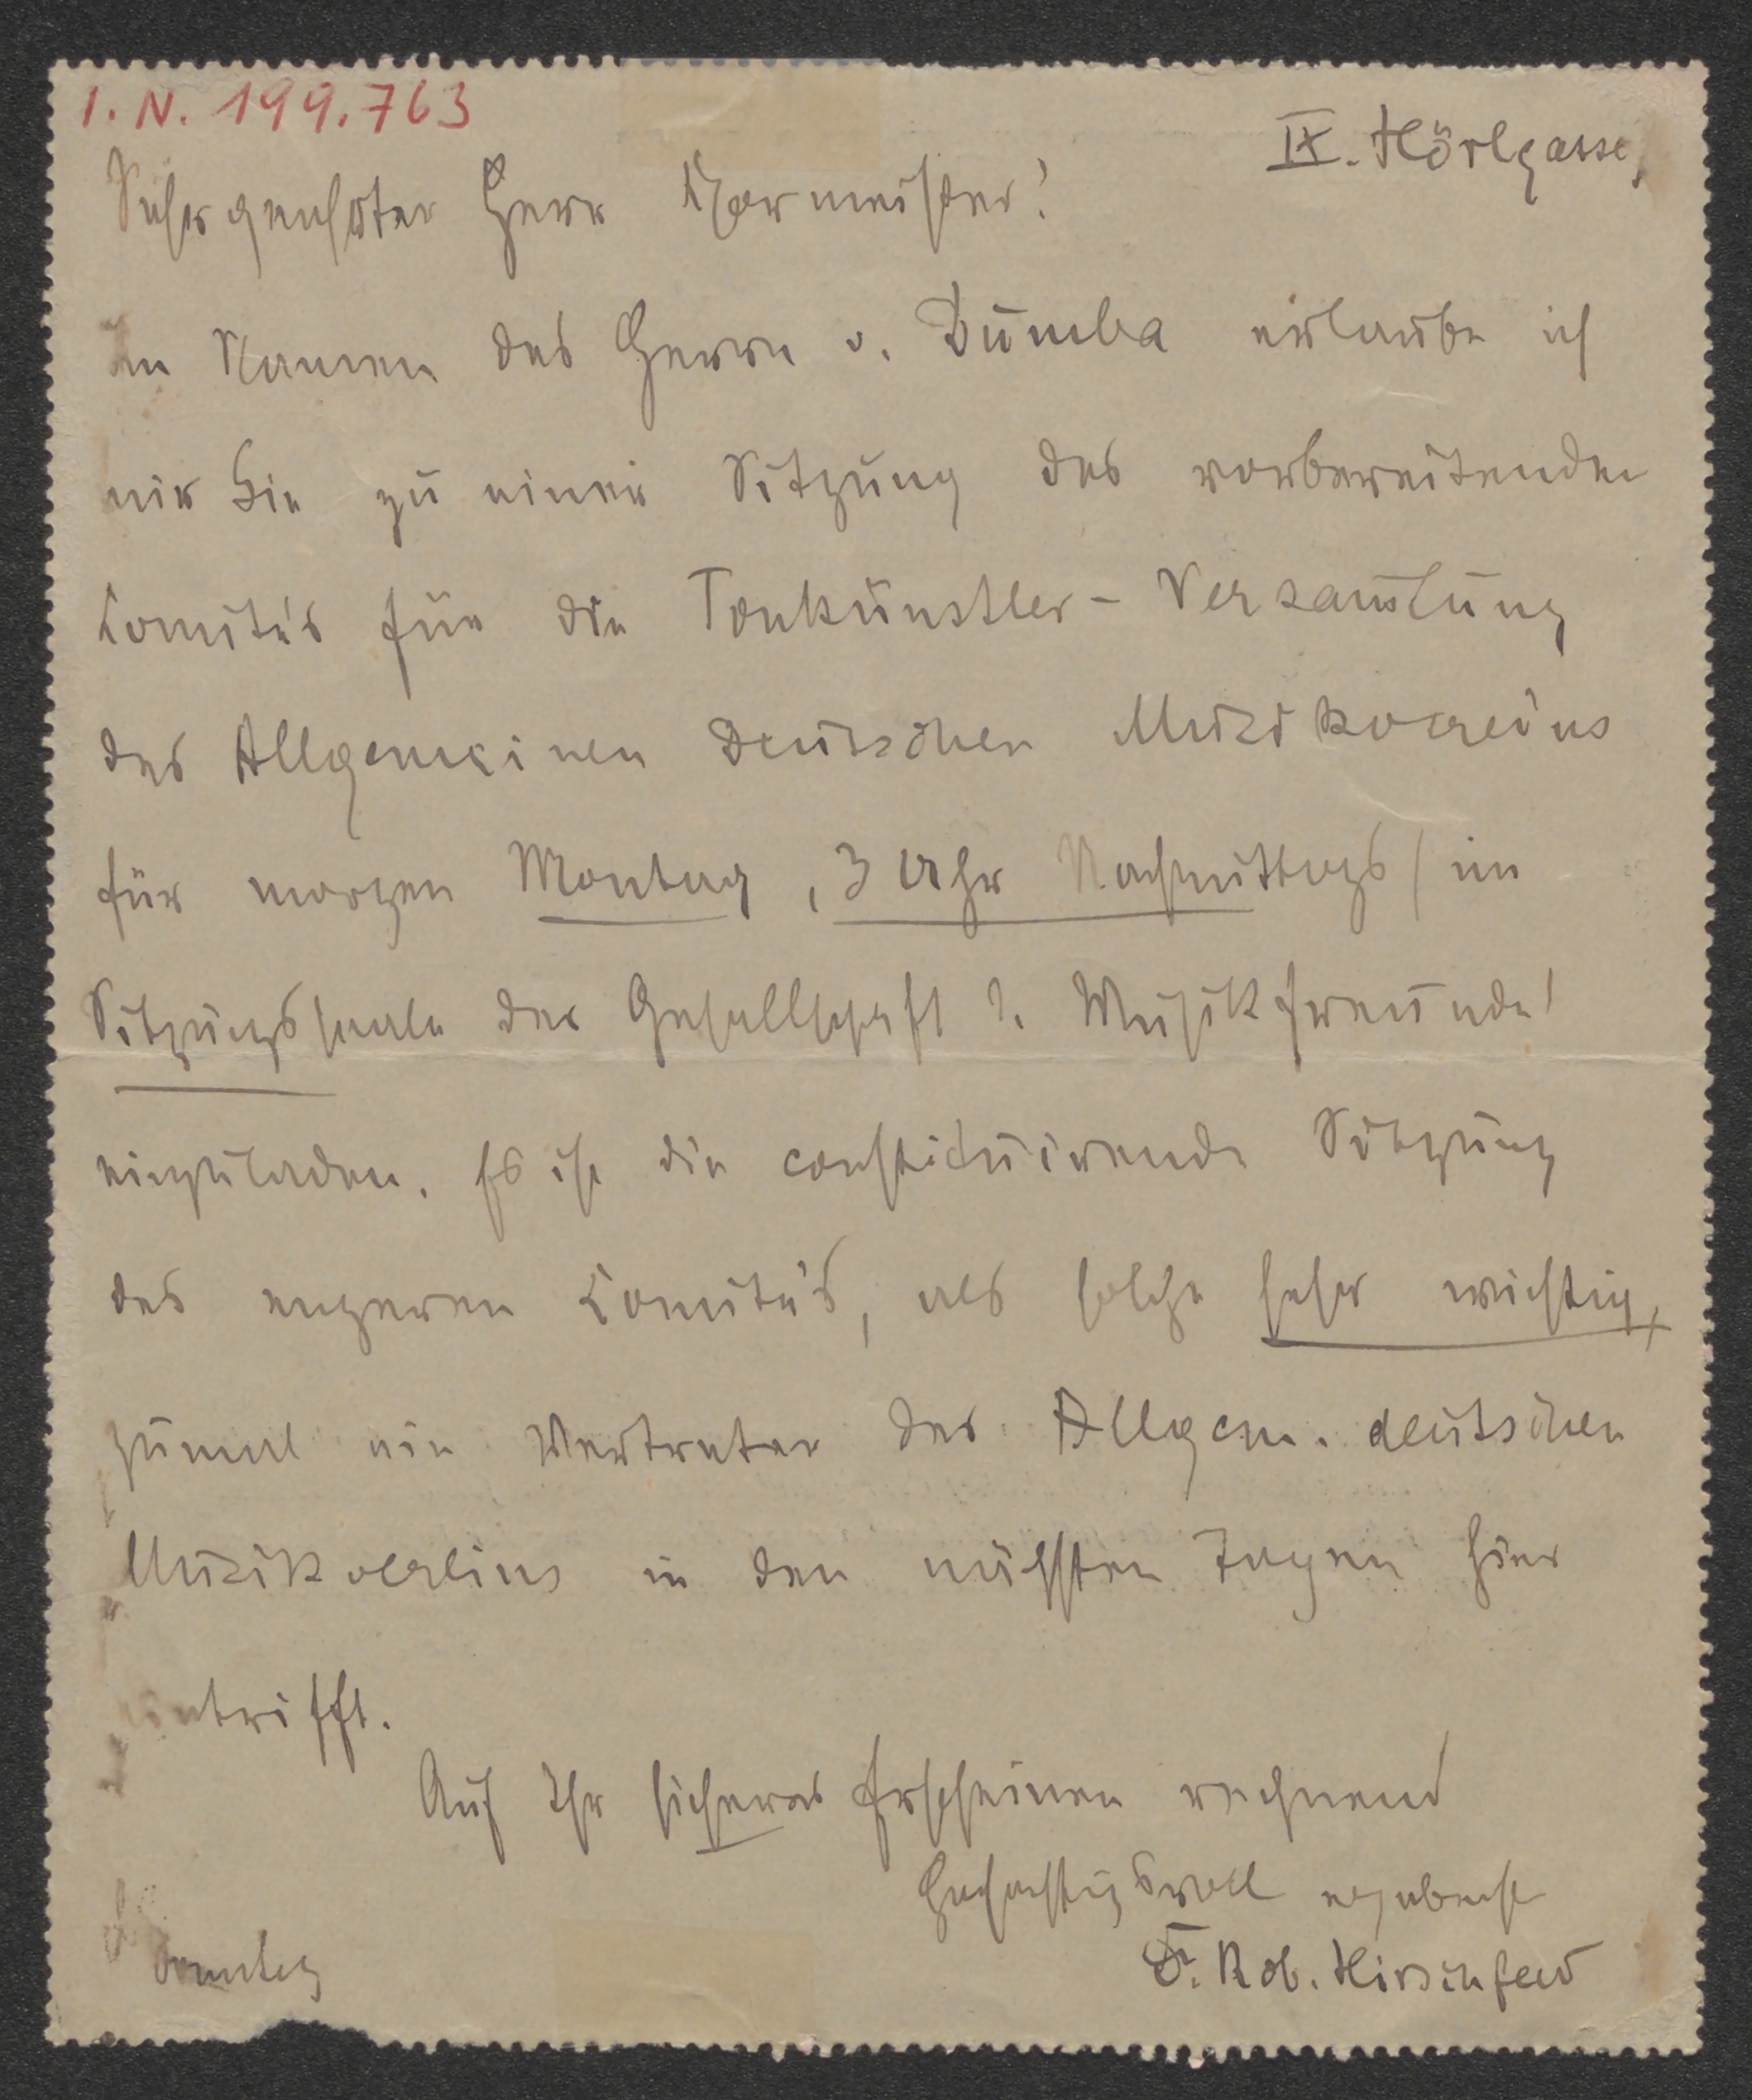 I. N. 199.763
IX. Hörlgasse
Sehr geehrter Herr Chormeister!
Im Namen des Herrn v. Dumba erlaube ich
mir Sie zu einer Sitzung des vorbereitenden
Comité's für die Tonkünstler-Versam̅lung
des Allgemeinen Deutschen Musikvereins
für morgen Montag, 3 Uhr Nachmittags (im
Sitzungssaale der Gesellschaft d. Musikfreunde)
einzuladen. Es ist die constituirende Sitzung
des engeren Comité's, als solche sehr wichtig,
zumal ein Vertreter des Allgem. deutschen
Musikvereins in den nächsten Tagen hier
eintrifft.
Auf Ihr sicheres Erscheinen rechnend
Hochachtungsvoll ergebenst
Dr. Rob. Hirschfeld
Sonntag